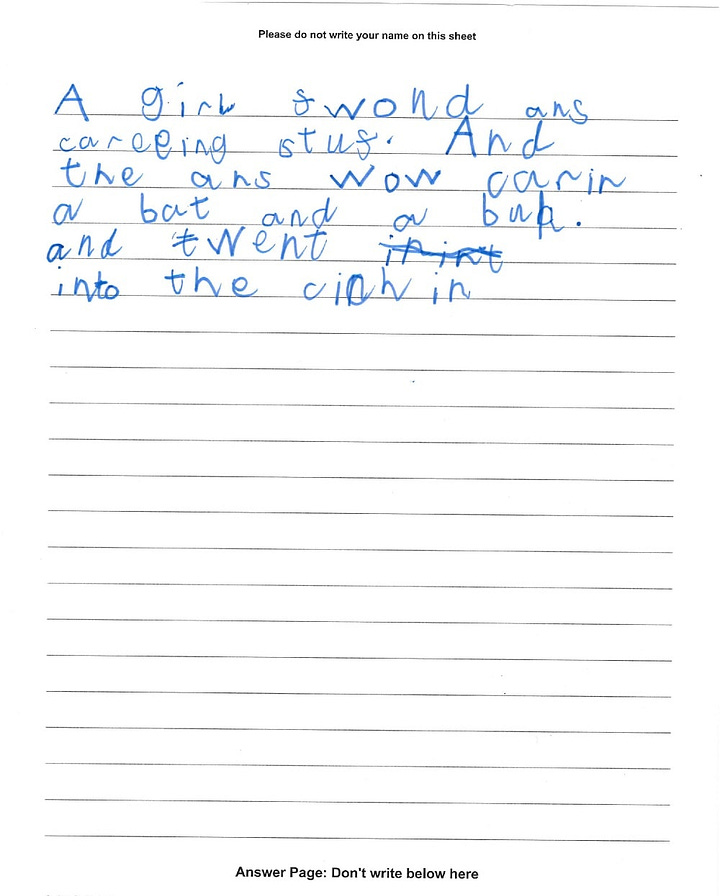 Please do not write your name on this sheet
A girl fwond ans
careeing stuf. And
the ans wow carin
a bat and a buk.
and twent
into the cichin
Answer Page: Don't write below here